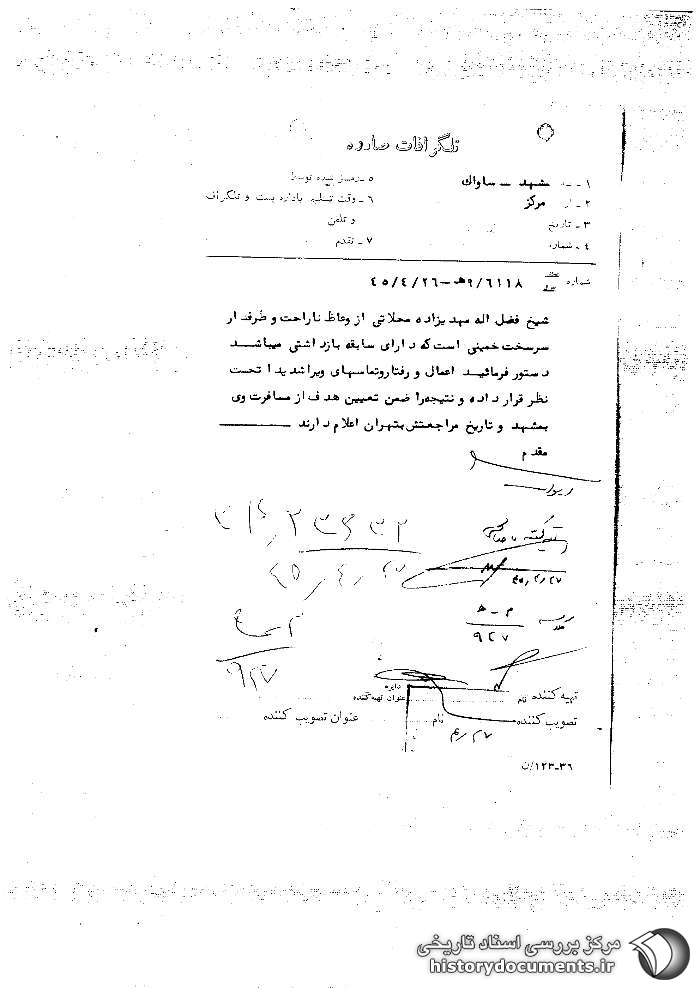 تلگرافات صادره
۱ـ به مشهد ـ ساواک
۲ـ از مرکز
۳ـ تاریخ
۴ـ شماره
۵ـ رمز شده توسط
۶ـ وقت تسلیم باداره پست و تلگراف
و تلفن
۷ـ تقدم
شماره ۹/۶۱۱۸هـ-۴۵/۴/۲۶
شیخ فضل اله مهدیزاده محلاتی از وعاظ ناراحت و طرفدار
سرسخت خمینی است که دارای سابقه بازداشتی میباشد
دستور فرمائید اعمال و رفتار وتماسهای ویرا شدیدا تحت
نظر قرار داده و نتیجه را ضمن تعیین هدف از مسافرت وی
بمشهد و تاریخ مراجعتش بتهران اعلام دارند
مقدم
۴۵/۴/۲۷
۴۵/۴/۲۷
م-ه
۹۲۷
۹۲۷
تهیه کننده نام
دایره
عنوان تهیه کننده
تصویب کننده نام
عنوان تصویب کننده
۴/۲۷
۳۶-۱۲۳/ن
مرکز بررسی اسناد تاریخی
historydocuments.ir